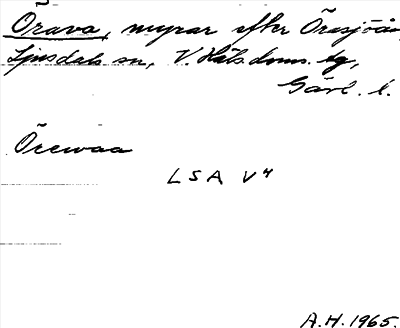 Örava, myrar efter Öresjöån,
Ljusdals sn, V. Häls. doms. tg,
Gävl. l.
Örewaa
LSA V4
A.H. 1965.